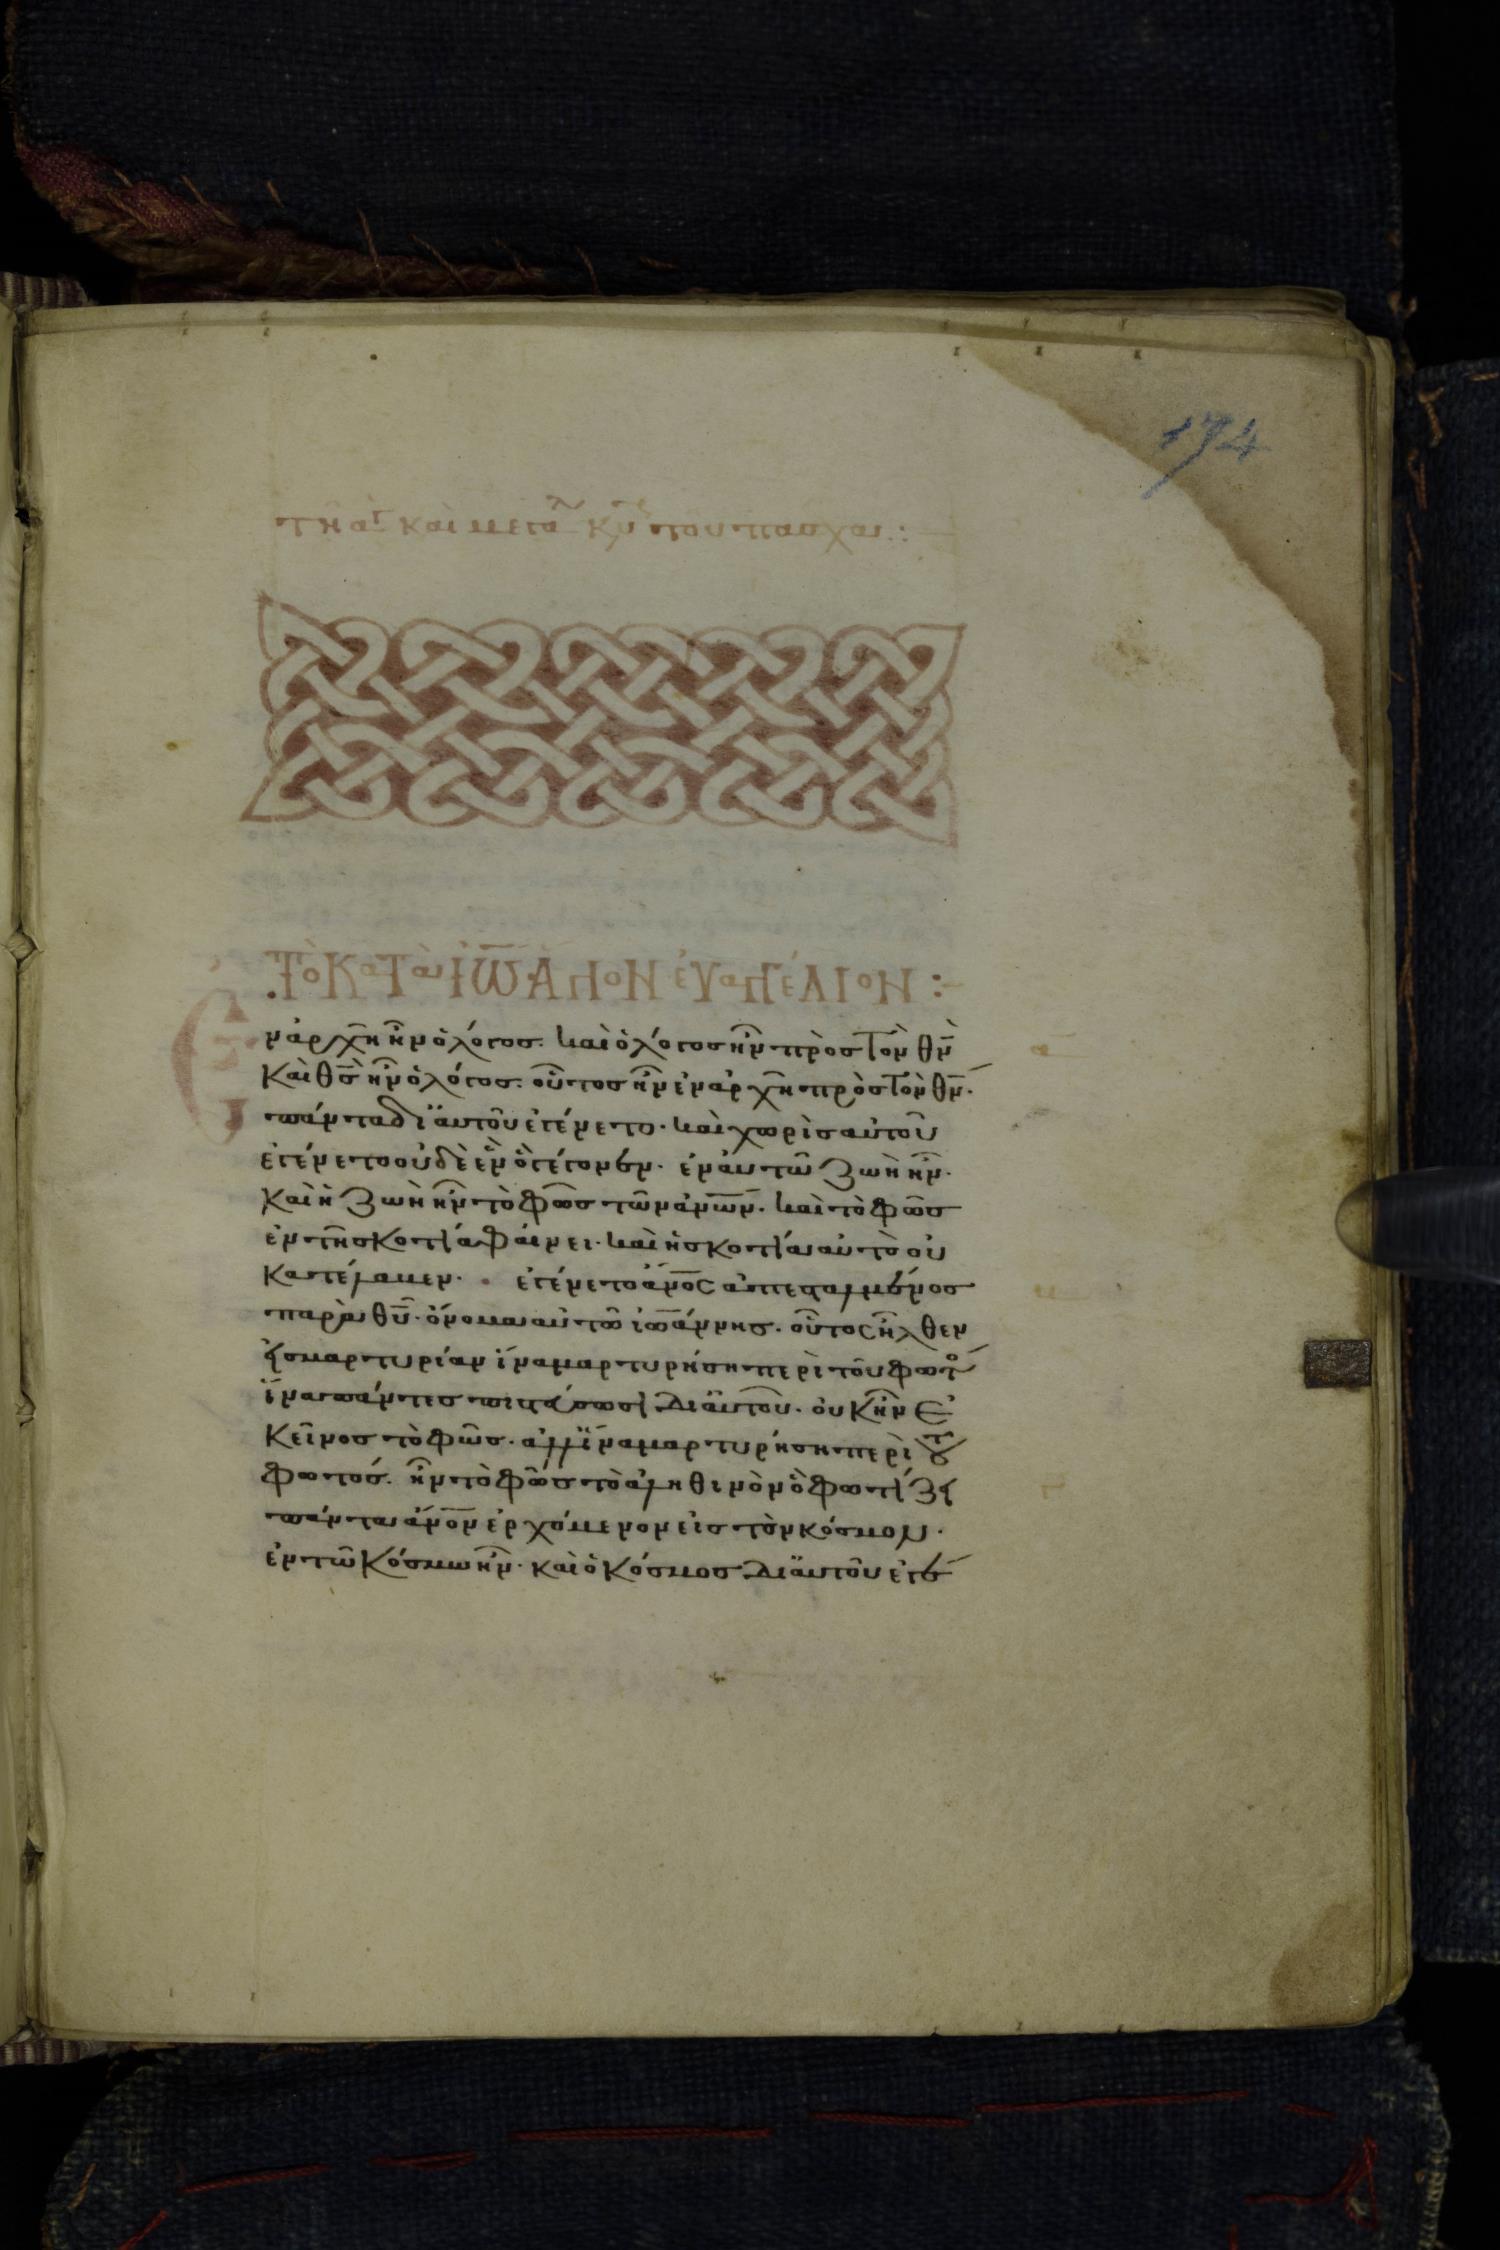 174
τῆ ἁγ καὶ μεγα κυ του πασχα :
Τὸ Κατὰ Ἰω̅άννον εὐαγγέλιον :
Ἐν ἀρχῆ ἦν ὁ λόγος. καὶ ὁ λόγος ἦν πρὸς τὸν θν̅
καὶ θς̅ ἦν ὁ λόγος. οὗτος ἦν ἐν ἀρχῆ πρὸς τὸν θν̅.
πάντα δι αὐτοῦ ἐγένετο. καὶ χωρὶς αὐτοῦ
ἐγένετο οὐδὲ ἓν ὃ γέγονεν. ἐν αὐτῶ ζωὴ ἦν.
καὶ ἡ ζωὴ ἦν τὸ φῶς τῶν ἀνω̅ν. καὶ τὸ φῶς
ἐν τῆ σκοτία φαίνει. καὶ ἡ σκοτία αὐτὸ οὐ
κατέλαβεν. ἐγένετο ἄνο̅ς ἀπεσταλμένος
παρὰ θυ̅. ὄνομα αὐτῶ ἰω̅άννης. οὗτος ἦλθεν
εἰς μαρτυρίαν ἵνα μαρτυρήση περὶ τοῦ φωτο
ἵνα πάντες πιστεύσωσι δι αὐτοῦ. οὐκ ἦν ἐ
κεῖνος τὸ φῶς. ἀλλ ἵνα μαρτυρήση περὶ τοῦ
φωτός. ἦν τὸ φῶς τὸ ἀληθινὸν ὃ φωτίζει
πάντα ἄνο̅ν ἐρχόμενον εἰς τὸν κόσμον.
ἐν τῶ κόσμω ἦν. καὶ ὁ κόσμος δι αὐτοῦ ἐγέ